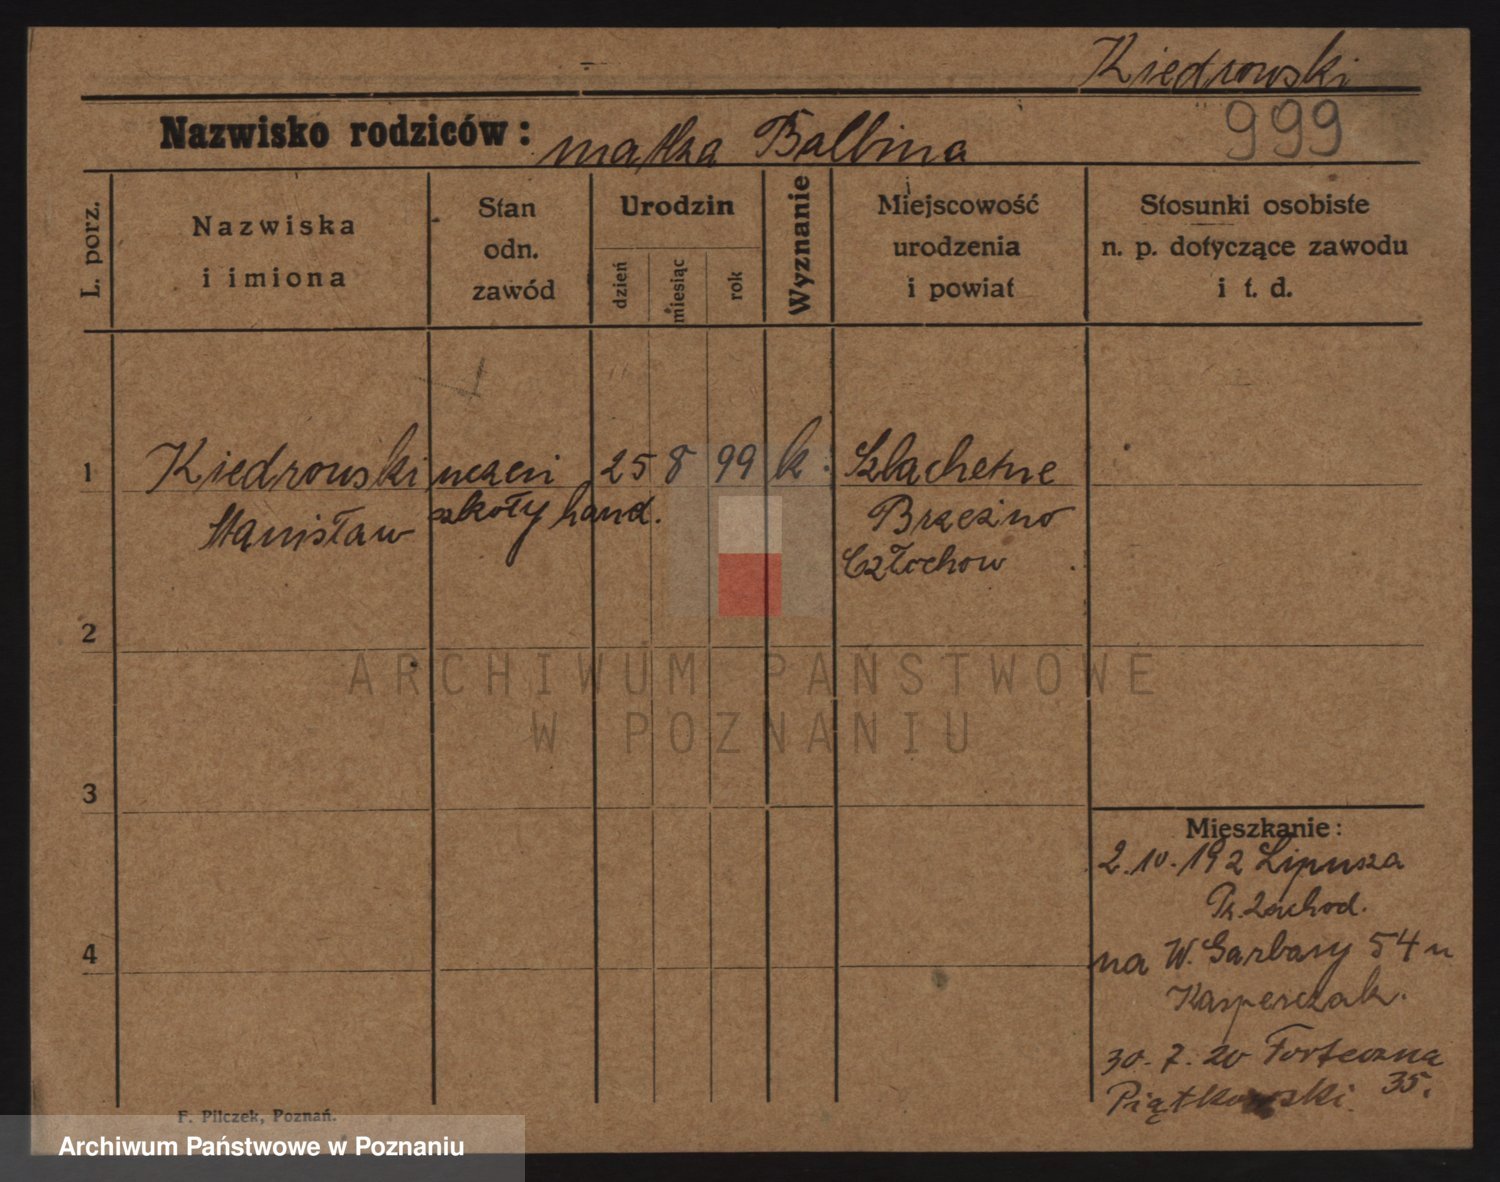 Kiedrowski
999
Nazwisko rodziców: matka Balbina
L. porz.
Nazwiska
i imiona
Stan
odn.
zawód
Urodzin
dzień
miesiąc
rok
Wyznanie
Miejscowość
urodzenia
i powiat
Stosunki osobiste
n. p. dotyczące zawodu
i t. d.
1 Kiedrowski uczeń 25 8 99 k. Szlachetne
Stanisław szkoły hand. Brzezino
Człochow
2
ARCHIWUM PAŃSTWOWE
W POZNANIU
3
Mieszkanie:
2.10.192 Lipusza
Pr. Zachod.
4
na W. Garbary 54 u
Kasperczak.
30.7.20 Forteczna
35.
Piątkowski.
F. Pilczek, Poznań.
Archiwum Państwowe w Poznaniu